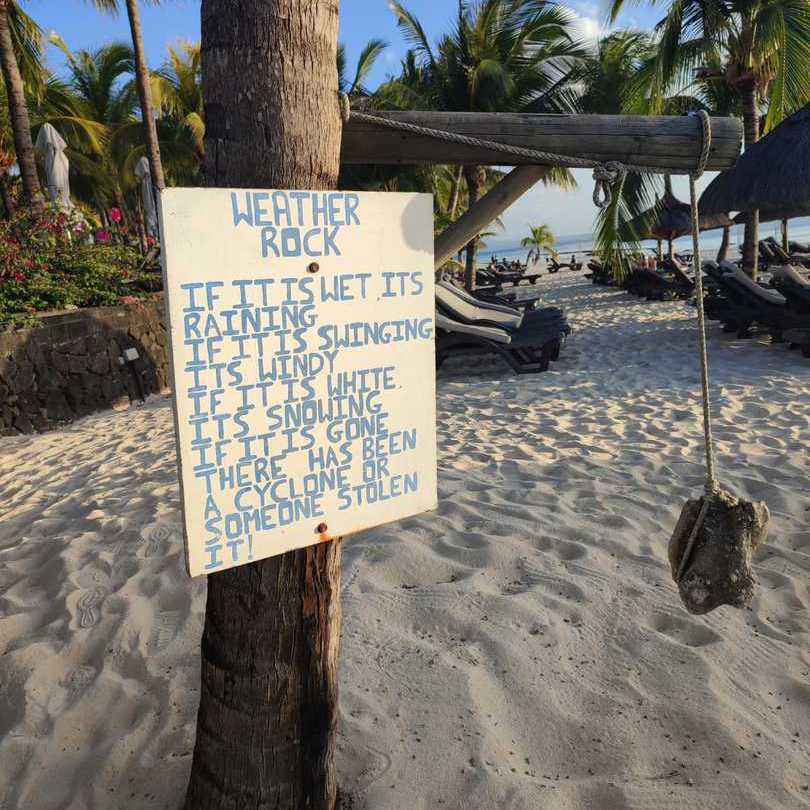 WEATHER
ROCK
IF IT IS WET, ITS
RAINING
IF IT IS SWINGING
ITS WINDY
IF IT IS WHITE.
ITS SNOWING
IF IT IS GONE
THERE HAS BEEN
A CYCLONE OR
SOMEONE STOLEN
IT!